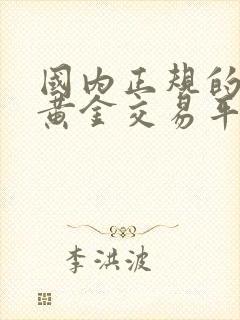 國內正規的
黃金交易平
李洪波